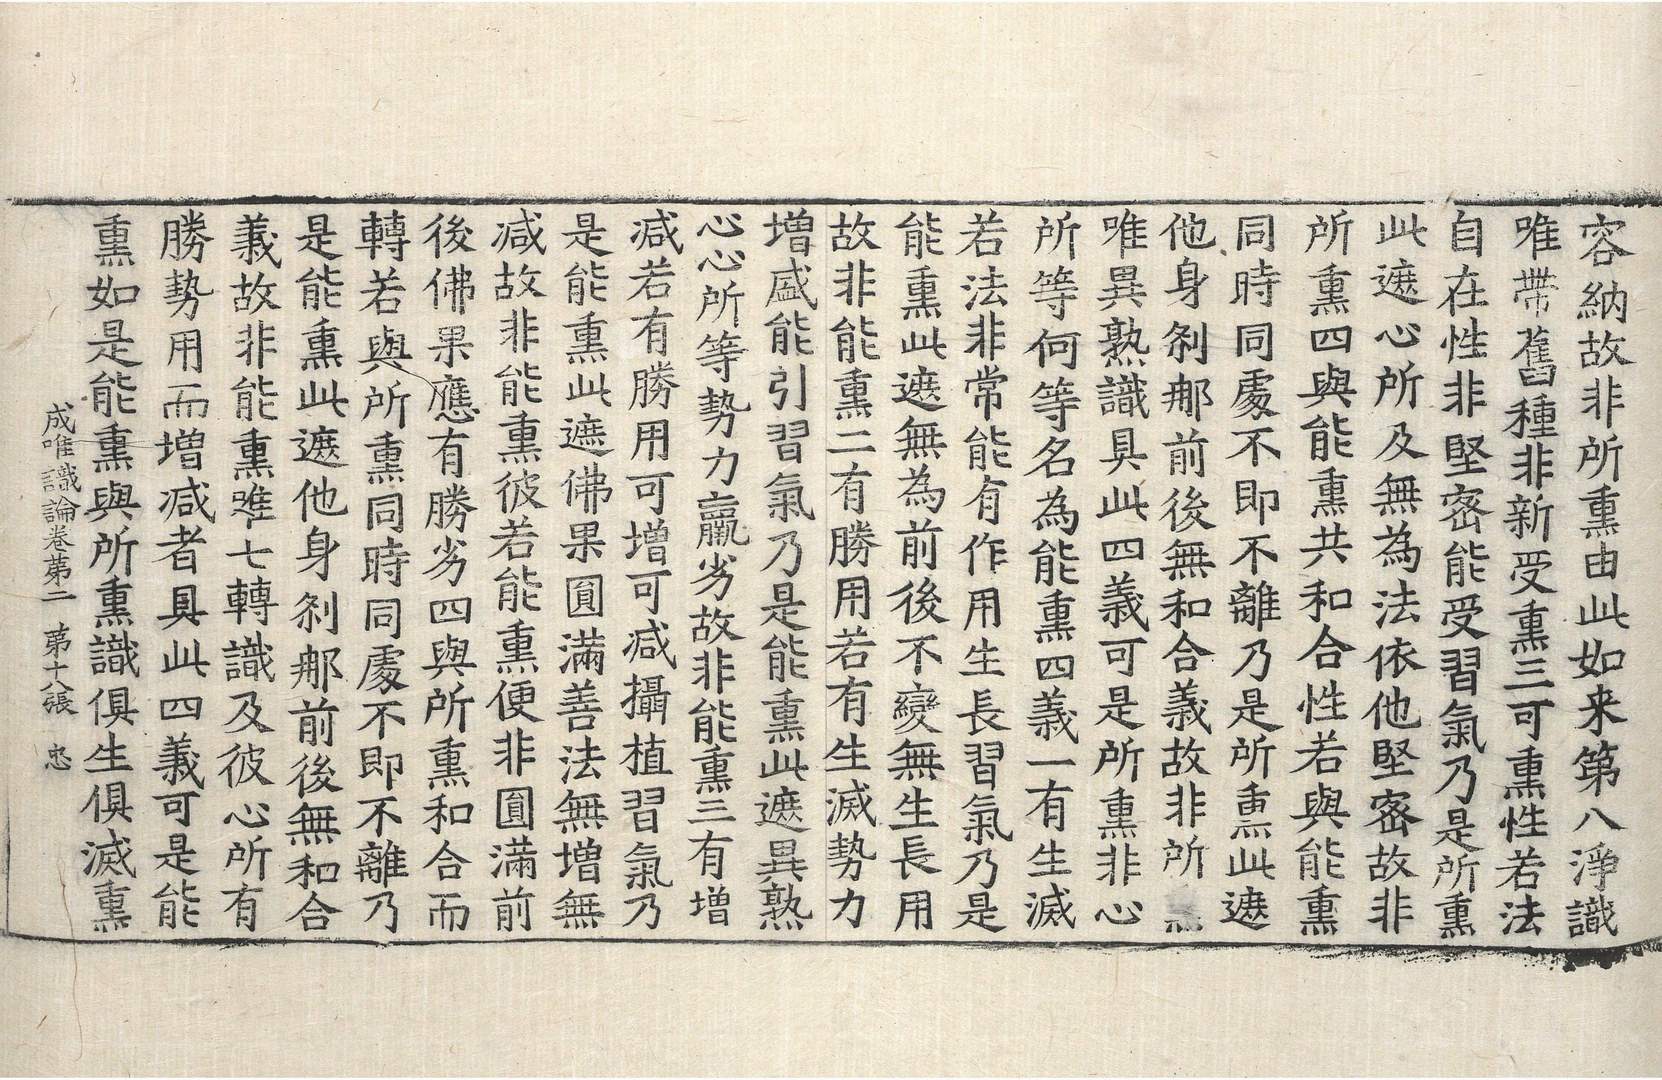 容納故非所熏由此如来第八淨識
唯帶舊種非新受熏三可熏性若法
自在性非堅密能受習氣乃是所熏
此遮心所及無為法依他堅密故非
所熏四與能熏共和合性若與能熏
同時同處不即不離乃是所熏此遮
他身刹那前後無和合義故非所
唯異熟識具此四義可是所熏非心
所等何等名為能熏四義一有生滅
若法非常能有作用生長習氣乃是
能熏此遮無為前後不變無生長用
故非能熏二有勝用若有生滅勢力
增盛能引習氣乃是能熏此遮異熟
心心所等勢力羸劣故非能熏三有增
减若有勝用可增可减攝植習氣乃
是能熏此遮佛果圓滿善法無增無
减故非能熏彼若能熏便非圓滿前
後佛果應有勝劣四與所熏和合而
轉若與所熏同時同處不即不離乃
是能熏此遮他身刹那前後無和合
義故非能熏唯七轉識及彼心所有
勝勢用而增减者具此四義可是能
熏如是能熏與所熏識俱生俱滅熏
成唯識論卷第二 第十八張 忠